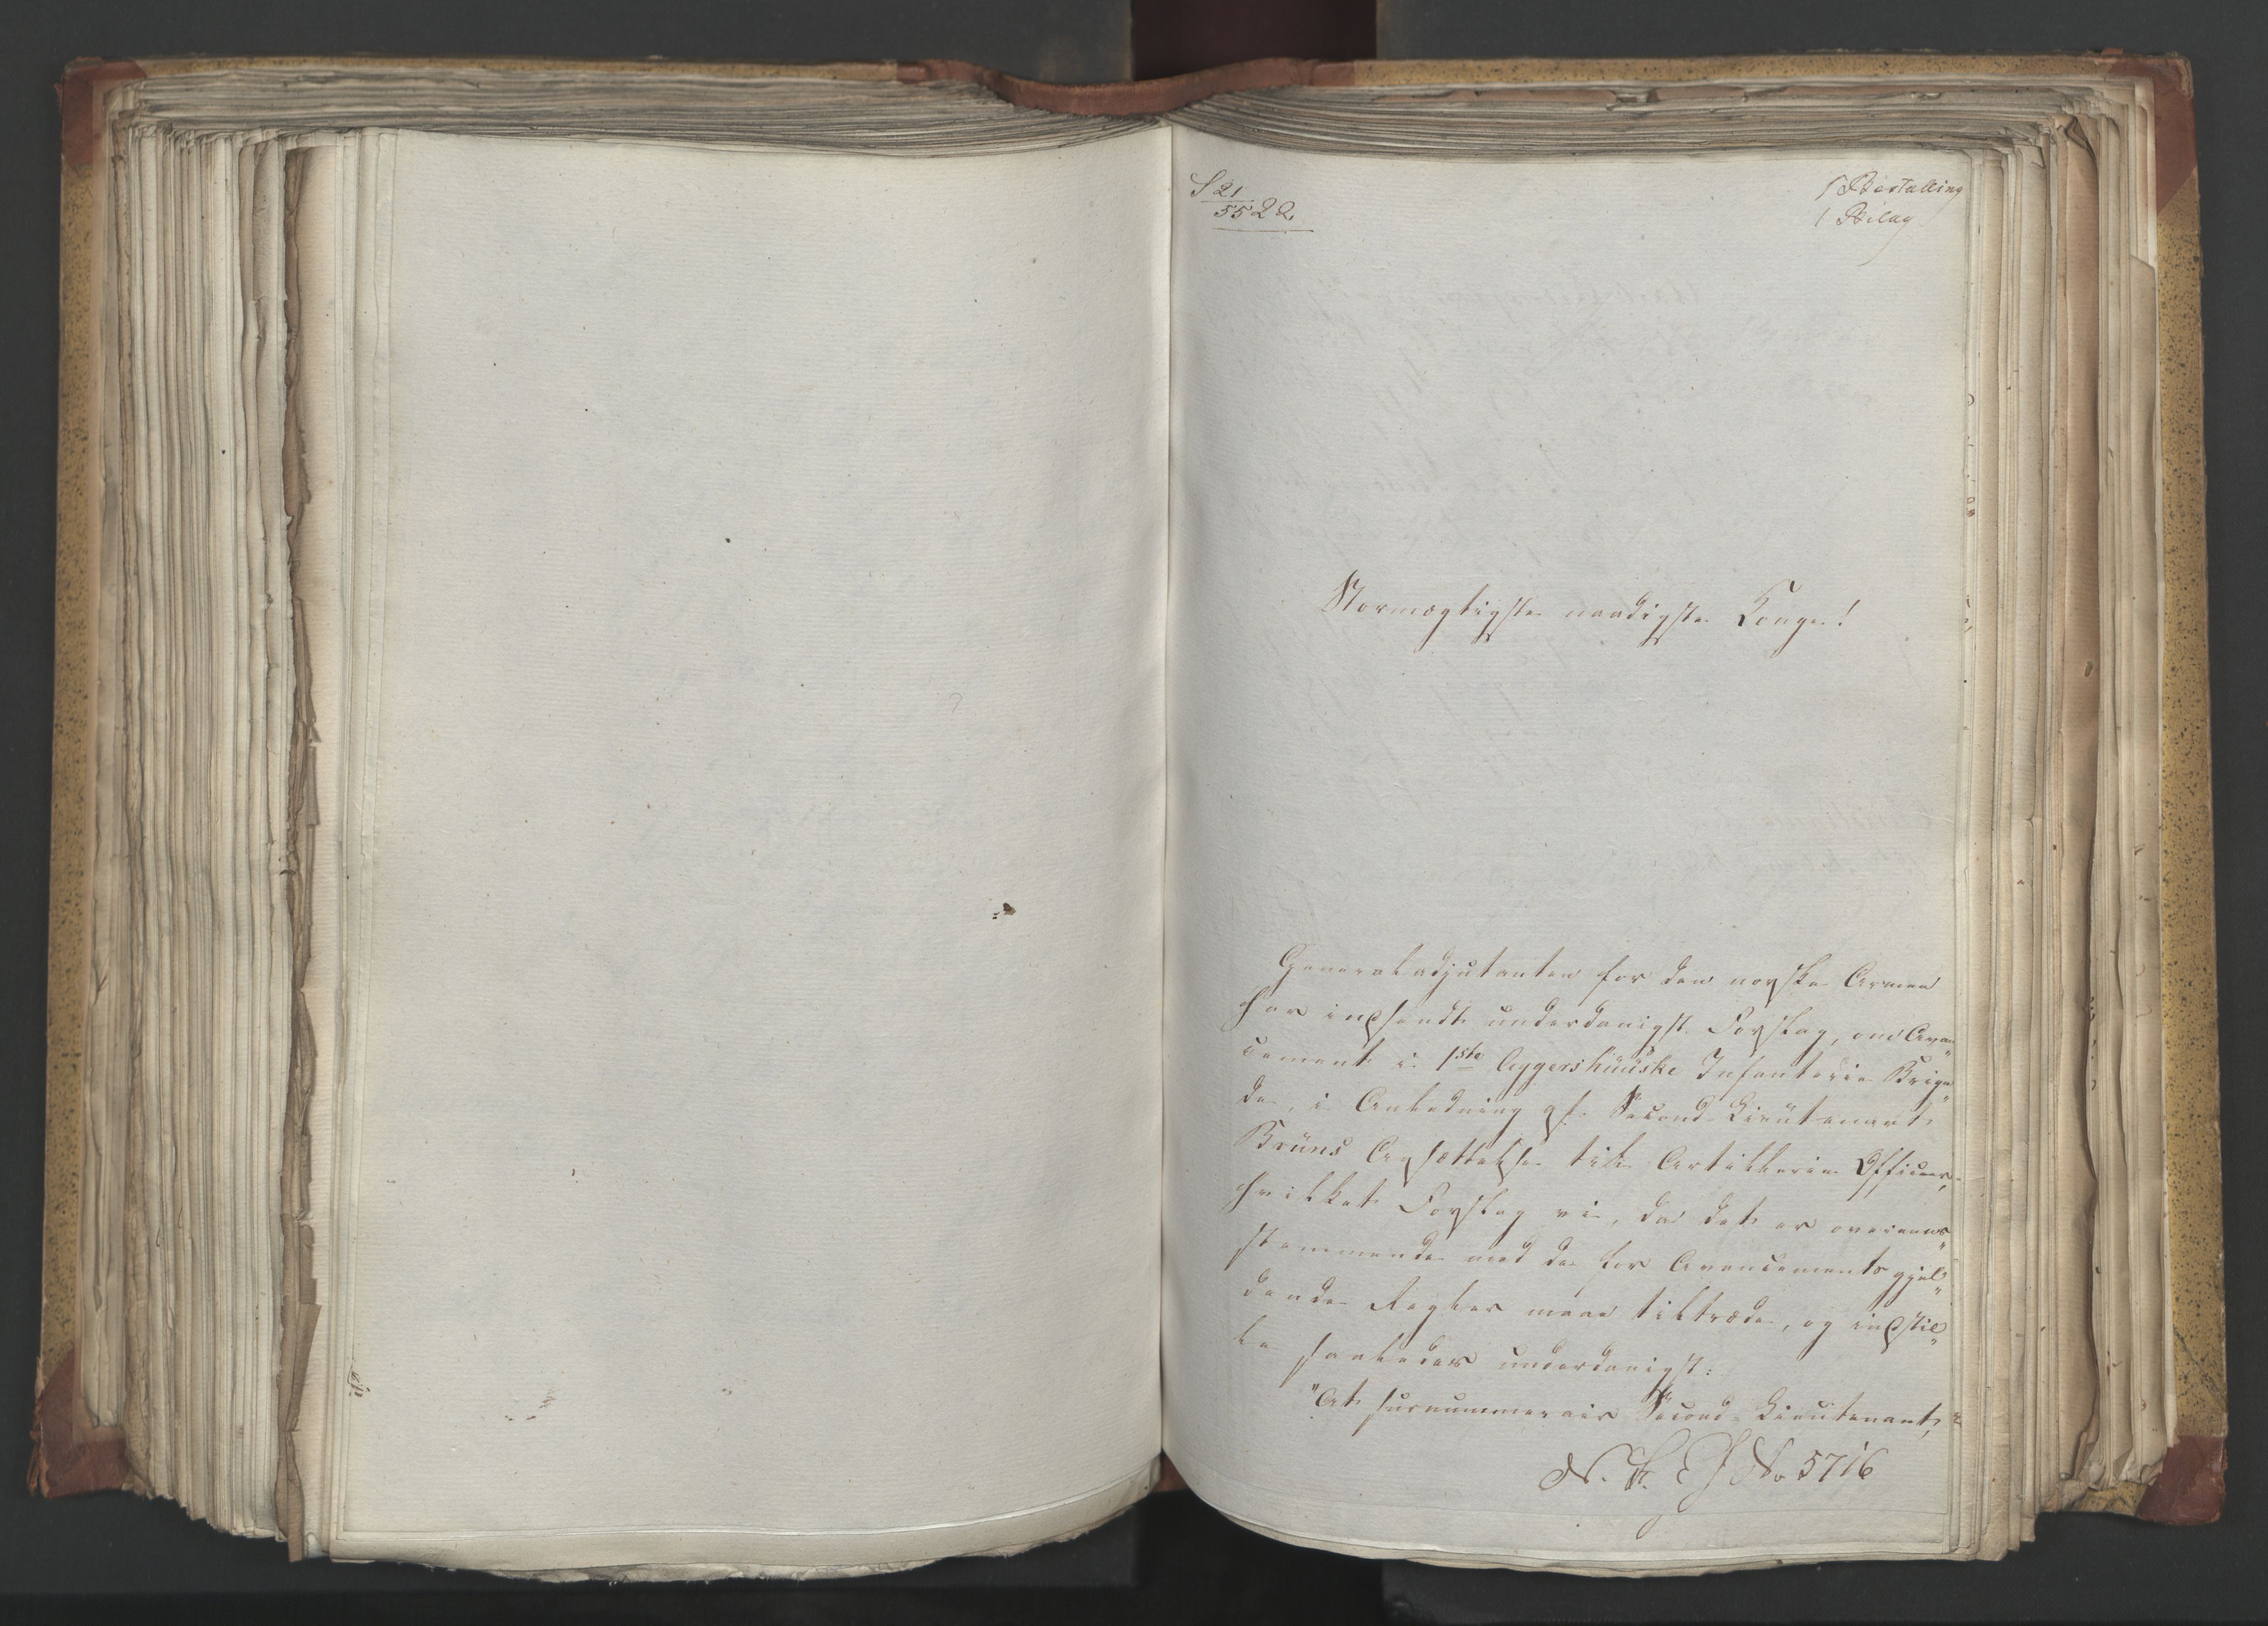 S 21
5522
1 Bestalling
1 Bilag
Stormægtigste naadigste Konge!
Generaladjutanten for den norske Armee
har indsendt underdanigst Forslag, om Avan„
cement i 1ste Aggershuuske Infanterie Briga„
de, i Anledning af Second-Lieutenant
Bruns Ansættelse til Artillerie Officeer,
hvilket Forslag vi, da det er overeens„
stemmende med de for Avancements gjel„
dende Regler maae tiltræde, og indstil„
le saaledes underdanigst:
"At surnummerair Second-Lieutenant,
No. 5716